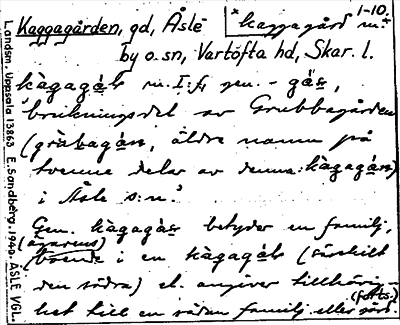 1-10.
Kaggagården, gd, Åsle
*kaggagård m.*
by o. sn, Vartofta hd, Skar. l.
kàgagáɫn m. I:f, gen. - gás,
'brukningsdel av Grubbagården
(grùbagáɫn, äldre namn på
tvenne delar av denna: kàgagáɫn)
i Åsle s:n.'
Gen. kàgagás betyder en familj,
(ägarens)
boende i en kàgagáɫn (särskilt
den södra) el. angiver tillhörig-
het till en sådan familj eller
(forts.)
Landsm. Uppsala 13863 E. Sandberg. 1940. ÅSLE VGL.